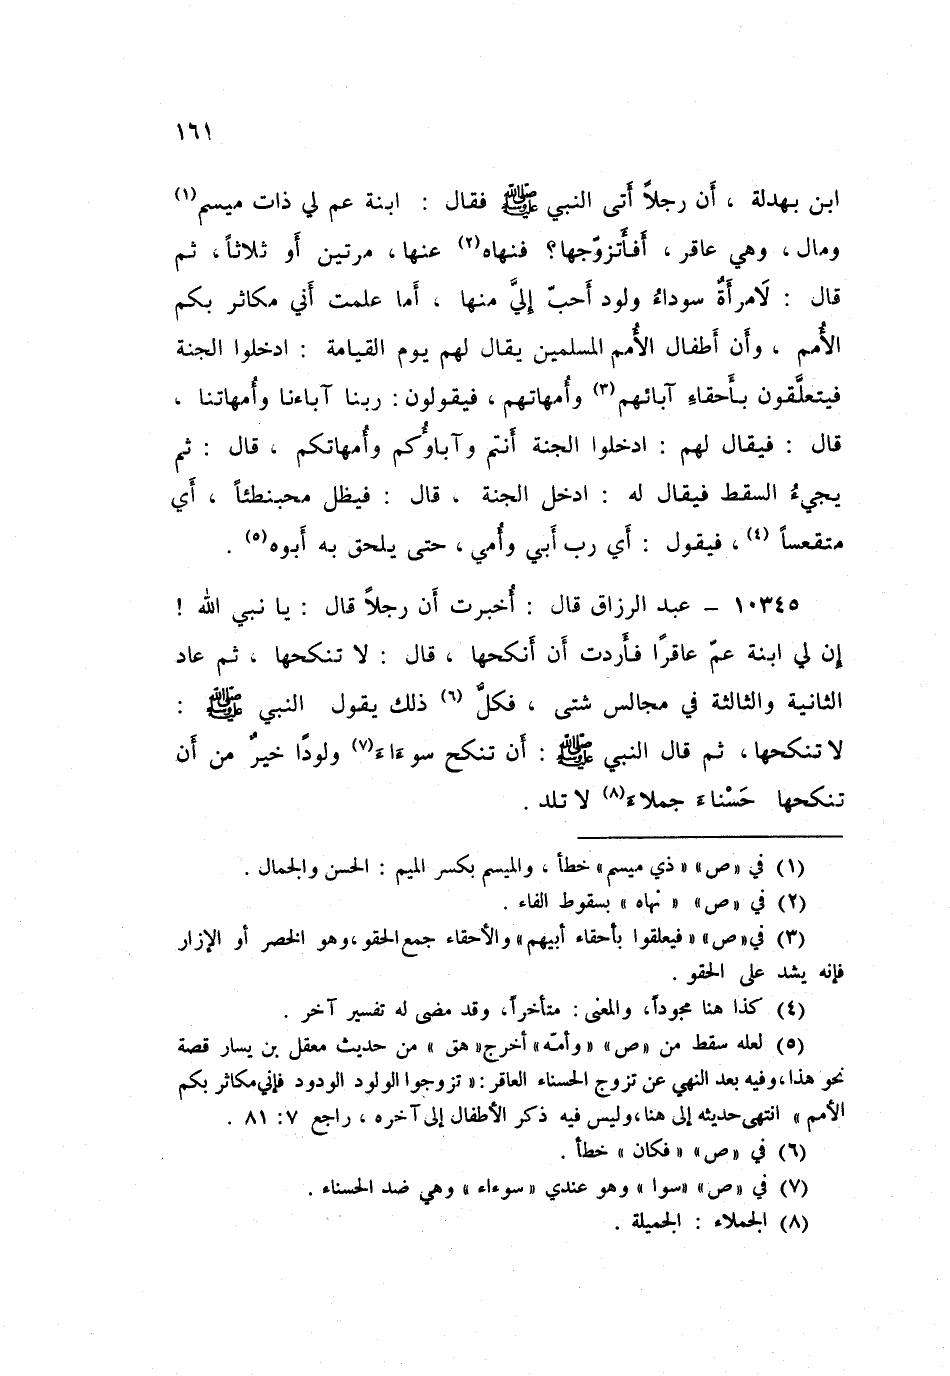 ١٦١
ابن بهدلة ، أن رجلاً أتى النبي ﷺ فقال : ابنة عم لي ذات ميسم(١)
ومال ، وهي عاقر ، أفأتزوّجها؟ فنهاه(٢) عنها، مرتين أو ثلاثاً، ثم
قال : لَامرأةٌ سوداءُ ولود أحبّ إليَّ منها ، أما علمت أني مكاثر بكم
الأُمم ، وأن أطفال الأُمم المسلمين يقال لهم يوم القيامة : ادخلوا الجنة
فيتعلَّقون بأحقاءِ آبائهم(٣) وأُمهاتهم ، فيقولون : ربنا آباءنا وأُمهاتنا ،
قال : فيقال لهم : ادخلوا الجنة أنتم وآباؤُكم وأُمهاتكم ، قال : ثم
يجيءُ السقط فيقال له : ادخل الجنة ، قال : فيظل محبنطئاً ، أي
متقعساً (٤)، فيقول : أي رب أبي وأُمي ، حتى يلحق به أبوه(٥) .
١٠٣٤٥ – عبد الرزاق قال : أُخبرت أن رجلاً قال : يا نبي الله !
إن لي ابنة عمّ عاقرًا فأردت أن أنكحها ، قال : لا تنكحها ، ثم عاد
الثانية والثالثة في مجالس شتى ، فكلَّ (٦) ذلك يقول النبي ﷺ :
لا تنكحها، ثم قال النبي ﷺ : أن تنكح سوءاءَ(٧) ولودًا خيرٌ من أن
تنكحها حَسْناءَ جملاءَ(٨) لا تلد .
(١) في «ص» «ذي ميسم» خطأ ، والميسم بكسر الميم : الحسن والجمال .
(٢) في «ص» « نهاه » بسقوط الفاء .
(٣) في«ص» «فيعلقوا بأحقاء أبيهم» والأحقاء جمع الحقو،وهو الخصر أو الإزار
فإنه يشد على الحقو .
(٤) كذا هنا مجوداً، والمعنى : متأخراً، وقد مضى له تفسير آخر .
(٥) لعله سقط من «ص» «وأمّه» أخرج«هق » من حديث معقل بن يسار قصة
نحو هذا،وفيه بعد النهي عن تزوج الحسناء العاقر :« تزوجوا الولود الودود فإني مكاثر بكم
الأمم » انتهى حديثه إلى هنا،وليس فيه ذكر الأطفال إلى آخره ، راجع ٧: ٨١ .
(٦) في «ص» «فكان » خطأ .
(٧) في «ص» «سوا » وهو عندي «سوءاء » وهي ضد الحسناء .
(٨) الجملاء : الجميلة .